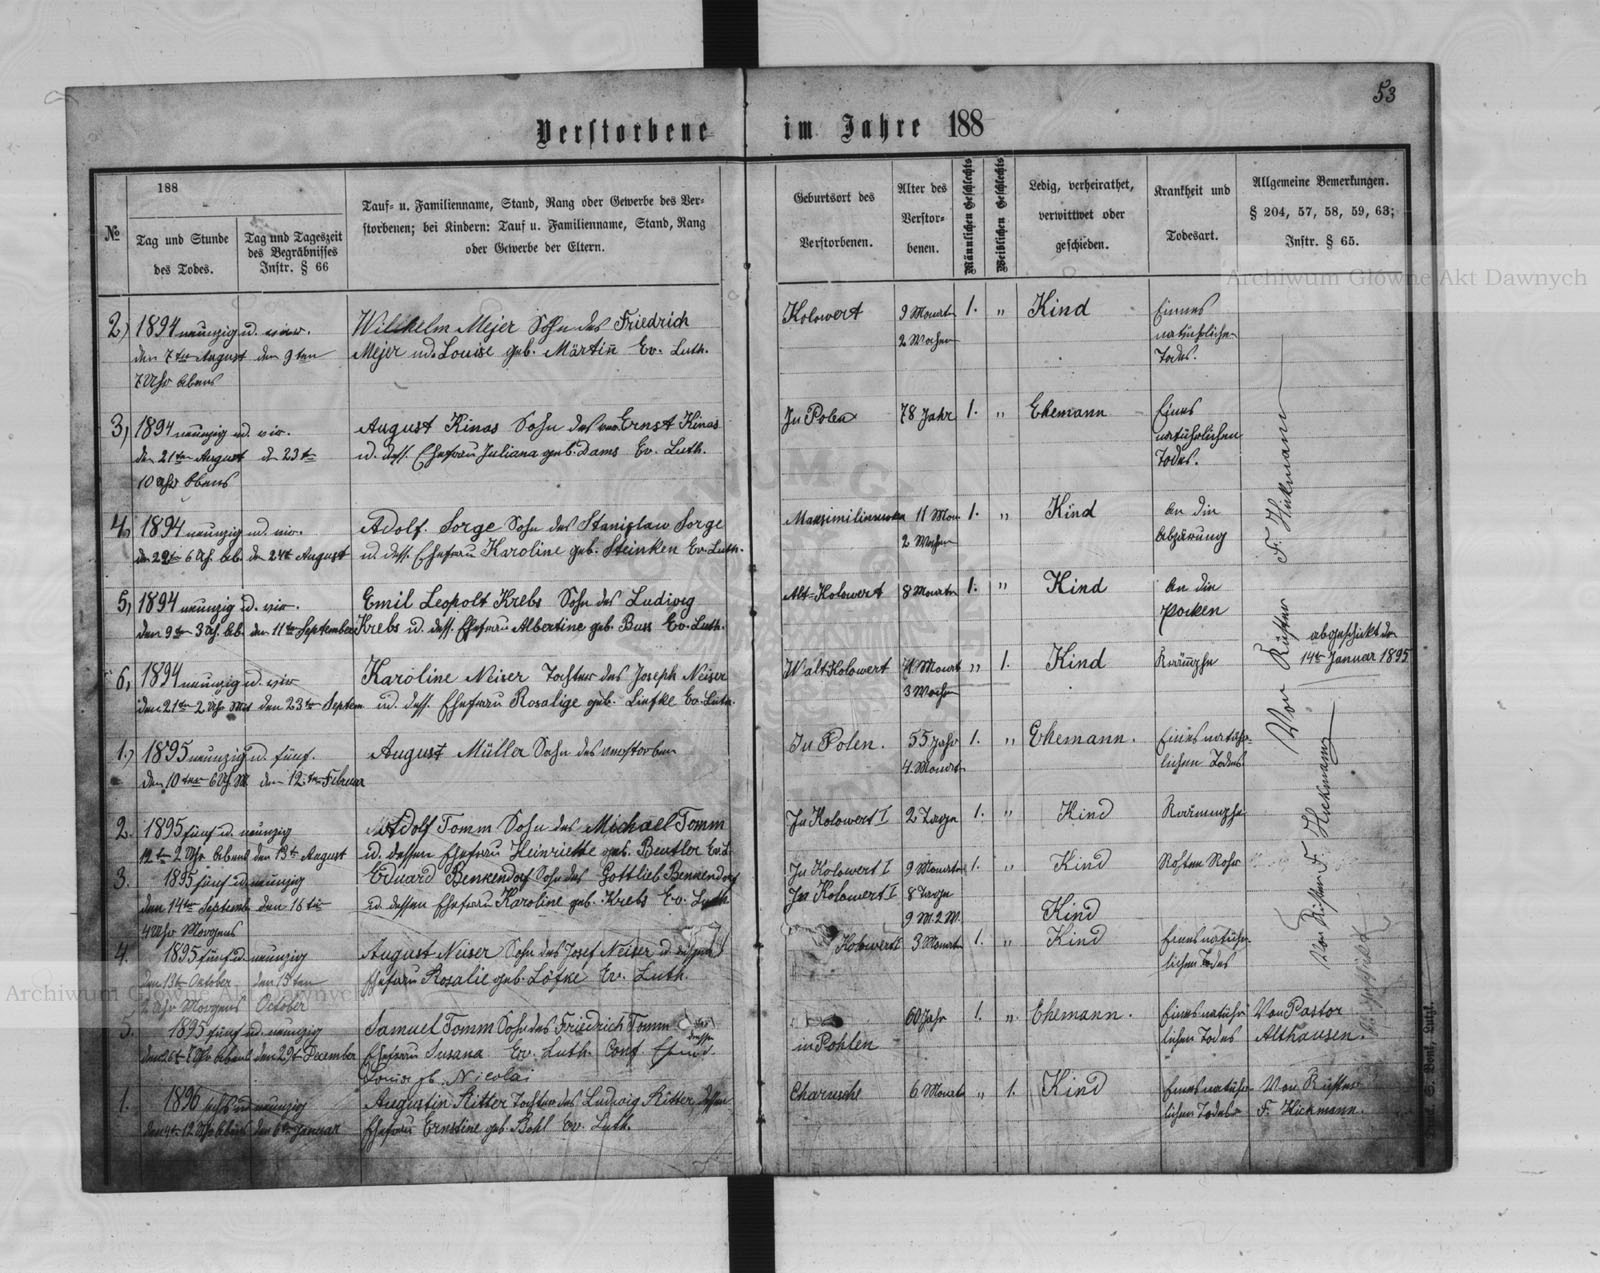 53
Verstorbene im Jahre 188
№
188
Tag und Stunde des Todes.
Tag und Tageszeit des Begräbnisses Instr. § 66
Tauf- u. Familienname, Stand, Rang oder Gewerbe des Ver-
storbenen; bei Kindern: Tauf u. Familienname, Stand, Rang
oder Gewerbe der Eltern.
Geburtsort des Verstorbenen.
Alter des Verstor-
benen.
Männlichen Geschlechts
Weiblichen Geschlechts
Ledig, verheirathet,
verwittwet oder
geschieden.
Krankheit und
Todesart.
Allgemeine Bemerkungen.
§ 204, 57, 58, 59, 63;
Instr. § 65.
Archiwum Główne Akt Dawnych
2) 1894 neunzig u. vier. Willhelm Mejer Sohn des Friedrich Kolowert 9 Monat 1. " Kind Eines
den 7ten August den 9ten Mejer u. d. Louise geb. Märtin Ev. Luth. 2 Wochen natührlichen
7 Uhr Abens Todes.
3) 1894 neunzig u. vir. August Kinas Sohn des ver. Ernst Kinas In Polen 78 Jahr 1. " Ehemann Eines
den 21ten August d 23te u. dess. Ehefrau Juliana geb. Dams Ev. Luth. natührlichen
10 Uhr Abens Todes.
4, 1894 neunzig u. vir. Adolf. Sorge Sohn des Stanislaw Sorge 11 Mon 1. " Kind An die
6 Uh. Ab. de 24t August u. dess. Ehefrau Karoline geb. Steinken Ev. Luth. 2 Wochen Abzärung
5, 1894 neunzig u. vir. Emil Leopolt Krebs Sohn des Ludwig Alt-Kolowert 8 Monate 1. " Kind An die
den 9ten 3 Uh. Ab. den 11ten September Krebs u. dess. Ehefrau Albertine geb. Buss Ev. Luth. Pocken
6, 1894 neunzig u. vir Karoline Neiser Tochter des Joseph Neiser Kolowert Monat " 1. Kind
den 21ten 2 Uhr Mit den 23ten Septem u. dess. Ehefrau Rosalige geb. Liefke Ev. Luth. 3 Wochen
abgeschickt den
14ten Januar 1895
Von Küster F. Hickmann
1.) 1895 neunzig u. fünf. August Müller Sohn des verstorben In Polen. 55 Jahr 1. " Ehemann. Eines natühr-
den 10ten 6 Uh M den 12ten Februar 4. Monate lichen Todes
2. 1895 fünf u. neunzig Adolf Tomm Sohn des Michael Tomm In Kolowert I 2 Tage 1. " Kind
2 Uhr Abens den 13t August u. dessen Ehefrau Heinriette geb. Beutler Ev. L.
3. 1895 fünf u. neunzig Eduard Benkendorf Sohn des Gottlieb Benkendorf In Kolowert I 9 Monate 1. " Kind
den 14ten Septemb den 16ten u. dessen Ehefrau Karoline geb. Krebs Ev. Luth In Kolowert I 8 Tage
4 Uhr Morgens 9 M. 2 W. Kind
4. 1895 fünf u. neunzig August Neiser Sohn des Josef Neiser u. dessen Kolowert 3 Monate 1. " Kind Eines natühr-
den 13t October den 15ten Ehefrau Rosalie geb. Löfke Ev. Luth. lichen Todes
2 Uhr Morgens October
Von Küster F. Hickmann
5. 1895 fünf u. neunzig Samuel Tomm Sohn des Friedrich Tomm dessen 60 Jahr 1. " Ehemann. Eines natühr- Von Pastor
den 26t 8 Uhr Abens den 29t December Ehefrau Susana Ev. Luth. Conf in Pohlen lichen Todes Althausen.
Nicolai
1. 1896 sechs u. neunzig Augustin Ritter Tochter des Ludwig Ritter, dessen 6 Monate " 1. Kind Eines natühr- Von Küster
den 4t 12 Uhr Abens den 6ten Januar Ehefrau Ernstine geb. Bohl Ev. Luth. lichen Todes F. Hickmann.
Archiwum Główne Akt Dawnych